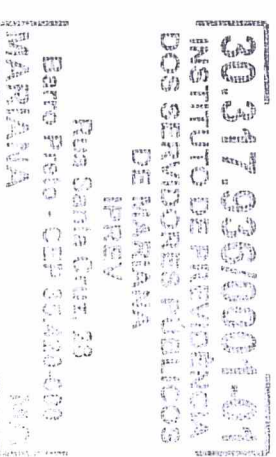 30.317.936/0001-01
INSTITUTO DE PREVIDÊNCIA
DOS SERVIDORES PÚBLICOS
DE MARIANA
IPREV
Rua Santa Cruz, 28
Barro Preto - CEP 35.420-000
MARIANA MG